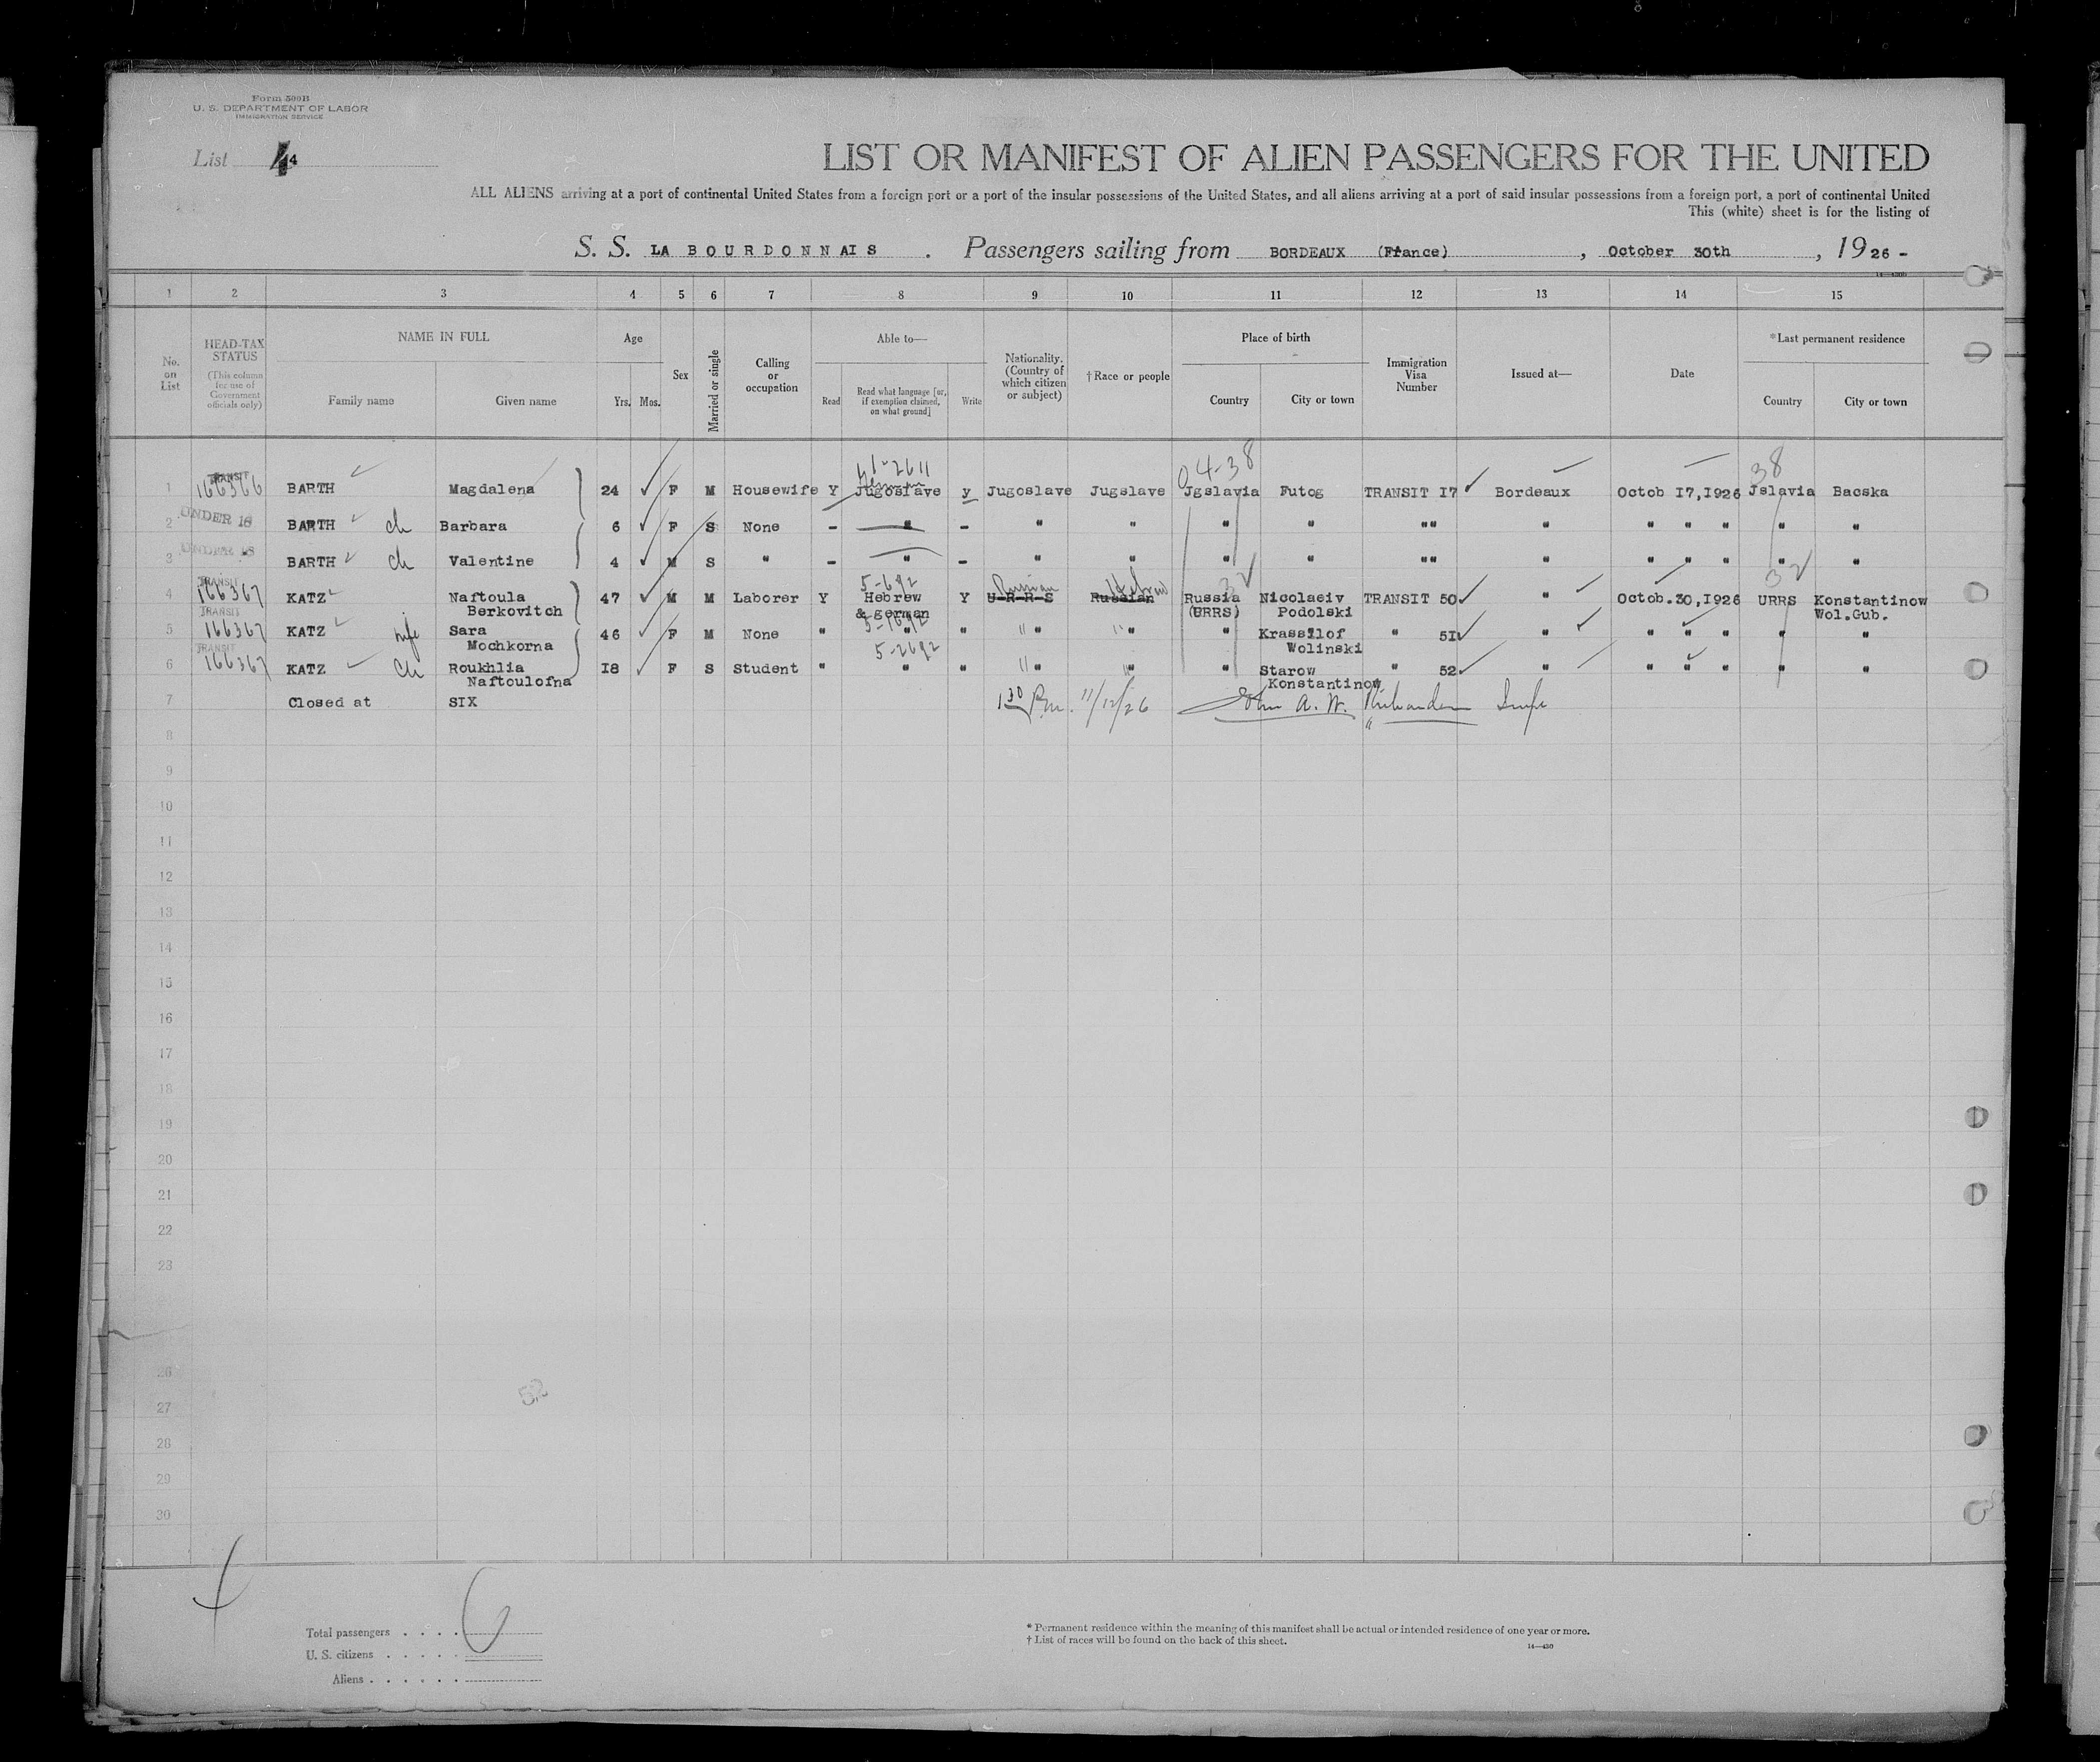 Form 500B
U. S. DEPARTMENT OF LABOR
IMMIGRATION SERVICE
List 4
LIST OR MANIFEST OF ALIEN PASSENGERS FOR THE UNITED
ALL ALIENS arriving at a port of continental United States from a foreign port or a port of the insular possessions of the United States, and all aliens arriving at a port of said insular possessions from a foreign port, a port of continental United
This (white) sheet is for the listing of
S. S. LA BOURDONNAIS . Passengers sailing from BORDEAUX (France) , October 30th , 1926 -
1 2 3 4 5 6 7 8 9 10 11 12 13 14 15
No. on List
HEAD-TAX STATUS (This column for use of Government officials only)
NAME IN FULL Family name Given name
Age Yrs. Mos.
Sex
Married or single
Calling or occupation
Able to— Read Read what language [or, if exemption claimed, on what ground] Write
Nationality. (Country of which citizen or subject)
†Race or people
Place of birth Country City or town
Immigration Visa Number
Issued at—
Date
*Last permanent residence Country City or town
04-38 38
1 TRANSIT 166366 BARTH Magdalena 24 F M Housewife Y Jugoslave y Jugoslave Jugslave Jgslavia Futog TRANSIT 17 Bordeaux Octob 17,1926 Jslavia Bacska
2 UNDER 16 BARTH ch Barbara 6 F S None - " - " " " " "" " " " " " "
3 UNDER 16 BARTH ch Valentine 4 M S " - " - " " " " "" " " " " " "
5-692 Russian Hebrew 32 32
4 TRANSIT 166367 KATZ Naftoula 47 M M Laborer Y Hebrew Y U-R-R-S Russian Russia Nicolaeiv TRANSIT 50 " Octob.30,1926 URRS Konstantinow
Berkovitch & german (URRS) Podolski Wol.Gub.
5 TRANSIT 166367 KATZ wife Sara 46 F M None " " " " " " Krassilof " 51 " " " " " "
Mochkorna 5-2692 Wolinski
6 TRANSIT 166367 KATZ ch Roukhlia 18 F S Student " " " " " " Starow " 52 " " " " " "
Naftoulofna Konstantinow
7 Closed at SIX 1 30 P.m. 11/12/26 John A. W.
8
9
10
11
12
13
14
15
16
17
18
19
20
21
22
23
26
27
28
29
30
52
Total passengers . . . . 6
U. S. citizens . . . . .
Aliens . . . . . .
* Permanent residence within the meaning of this manifest shall be actual or intended residence of one year or more.
† List of races will be found on the back of this sheet.
14—430